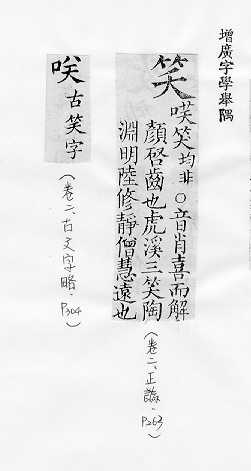 增廣字學舉隅
笑 㗛笑均非○音肖喜而解
顏啓齒也虎溪三笑陶
淵明陸修靜僧慧遠也
（卷二、正譌．P263）
咲古笑字
（卷二、古文字略．P304）